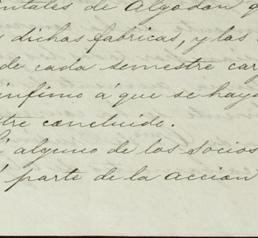 de Algodon
dichas fabricas, y las
de cada semestre car
infimo á que se haya
tre concluido.
alguno de los socios
parte de la accion